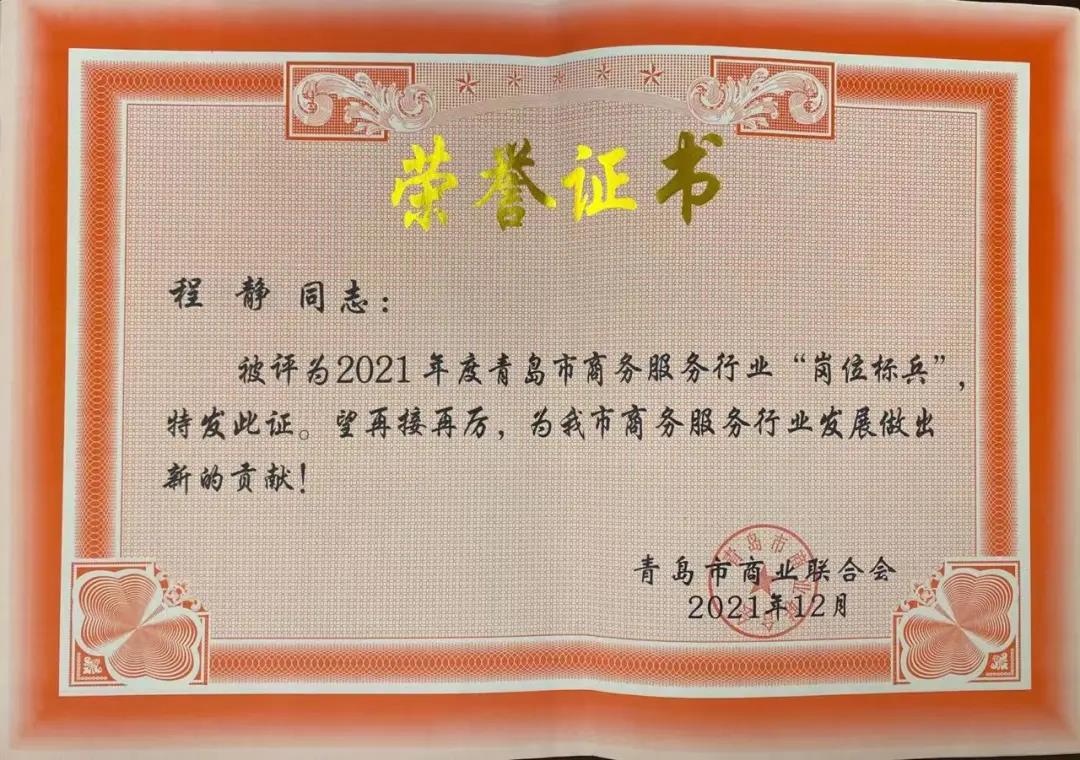 荣誉证书
程 静 同志：
被评为2021年度青岛市商务服务行业“岗位标兵”，
特发此证。望再接再厉，为我市商务服务行业发展做出
新的贡献！
青岛市商业联合会
2021年12月